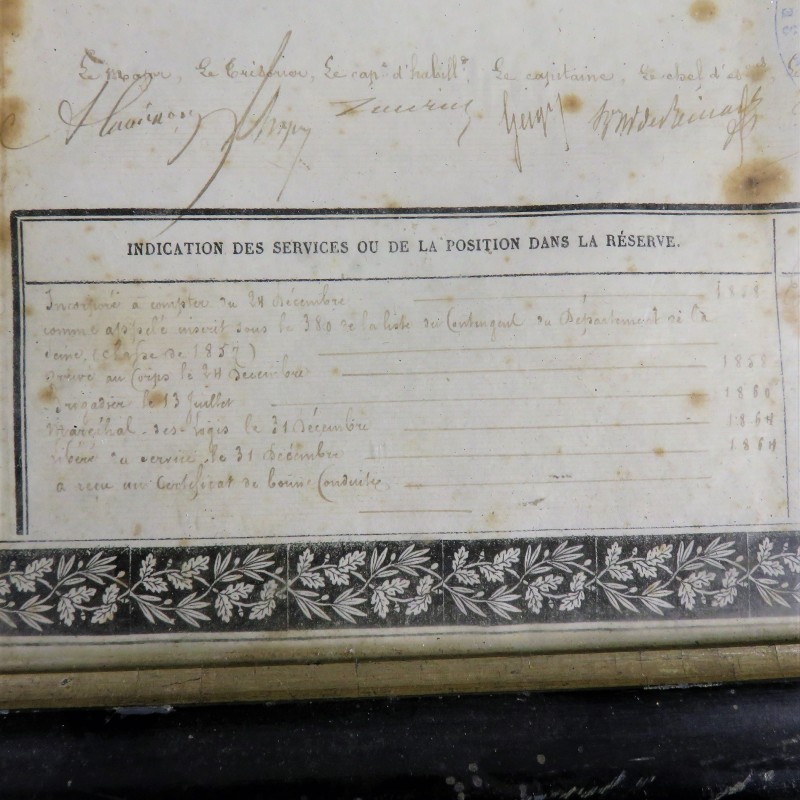 Le Major, Le Trésorier, Le cap.ne d'habill.t Le capitaine, Le chef d'es
INDICATION DES SERVICES OU DE LA POSITION DANS LA RÉSERVE.
Incorporé à compter du 24 Décembre 1858
comme appelé inscrit sous le 380 de la liste du Contingent du Département de la
Seine, (Classe de 1857)
Arrivé au Corps le 24 Décembre 1858
Brigadier le 13 Juillet 1860
Maréchal des logis le 31 Décembre 1864
libéré du service le 31 Décembre 1864
a reçu un Certificat de bonne Conduite